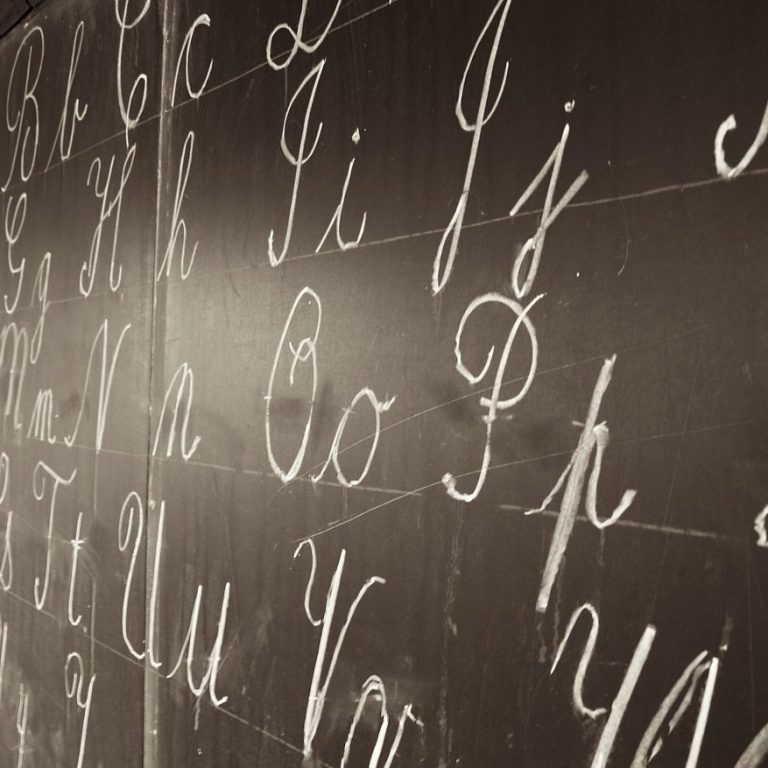 B b C c D
G g H h I i J j
M m N n O o P p
S s T t U u V v W
y